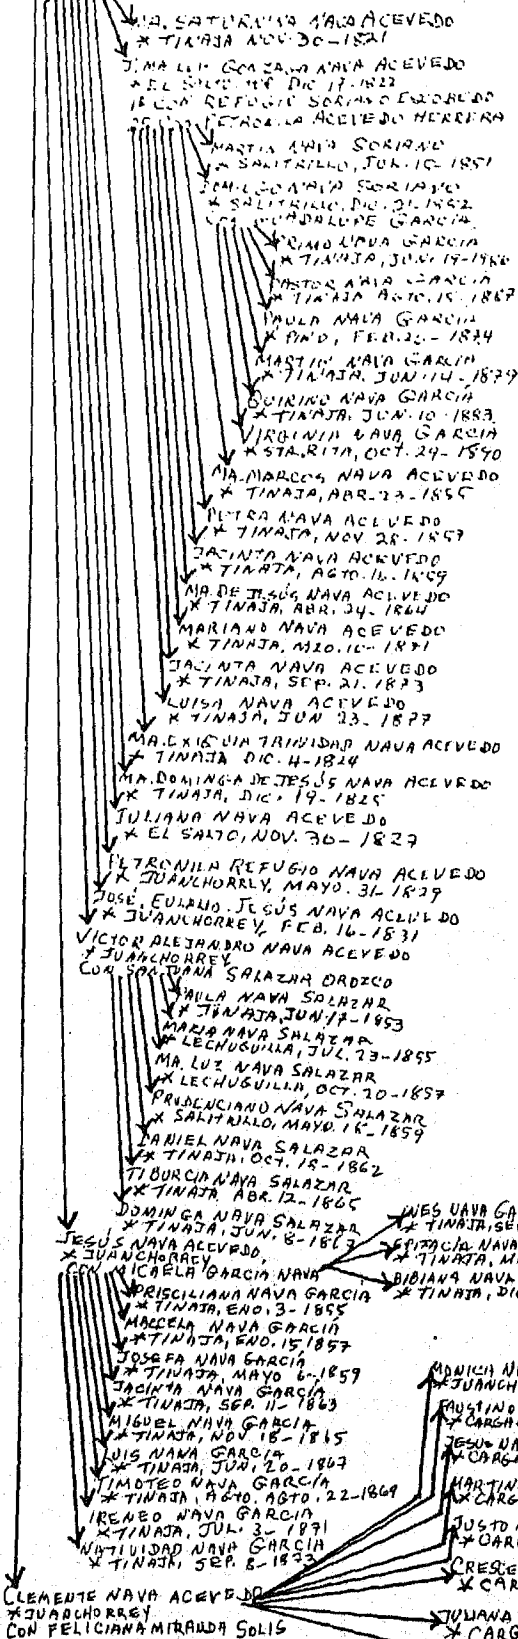 MA. SATURNINA NAVA ACEVEDO
* TINAJA NOV. 30-1821
NAVA ACEVEDO
* EL SALTO DIC 17-1822
1A CON REFUGIO SORIANO ESCOBEDO
CON PETRONILA ACEVEDO HERRERA
MARTIN NAVA SORIANO
* SALITRILLO, JUL. 1851
NAVA SORIANO
* SALITRILLO, DIC. 31-1852
GUADALUPE GARCIA
PRIMO NAVA GARCIA
* TINAJA, JUN. 19-
PASTOR NAVA GARCIA
* TINAJA AGTO. 1867
PAULA NAVA GARCIA
* PINO, FEB. 1874
MARTIN NAVA GARCIA
* TINAJA, JUN. 14-1879
QUIRINO NAVA GARCIA
* TINAJA, JUN. 10-1883
VIRGINIA NAVA GARCIA
* STA. RITA, OCT. 29-1890
MA. MARCOS NAVA ACEVEDO
* TINAJA, ABR. 23-1855
PETRA NAVA ACEVEDO
* TINAJA, NOV. 28-1857
JACINTA NAVA ACEVEDO
* TINAJA, AGTO. 16-1859
MA. DE JESÚS NAVA ACEVEDO
* TINAJA, ABR. 24-1864
MARIANO NAVA ACEVEDO
* TINAJA, MZO. 10-1871
JACINTA NAVA ACEVEDO
* TINAJA, SEP. 21. 1873
LUISA NAVA ACEVEDO
* TINAJA, JUN 23-1877
MA. EXIQUIA TRINIDAD NAVA ACEVEDO
* TINAJA DIC. 4-1824
MA. DOMINGA DE JESÚS NAVA ACEVEDO
* TINAJA, DIC. 19-1825
JULIANA NAVA ACEVEDO
* EL SALTO, NOV. 30-1827
PETRONILA REFUGIO NAVA ACEVEDO
* JUANCHORREY, MAYO. 31-1829
JOSÉ. EULALIO. JESÚS NAVA ACEVEDO
* JUANCHORREY, FEB. 16-1831
VICTOR ALEJANDRO NAVA ACEVEDO
* JUANCHORREY
CON SANJUANA SALAZAR OROZCO
PAULA NAVA SALAZAR
* TINAJA, JUN. 17-1853
MARIA NAVA SALAZAR
* LECHUGUILLA, JUL. 23-1855
MA. LUZ NAVA SALAZAR
* LECHUGUILLA, OCT. 20-1857
PRUDENCIANO NAVA SALAZAR
* SALITRILLO, MAYO. 15-1859
DANIEL NAVA SALAZAR
* TINAJA, OCT. 15-1862
TIBURCIA NAVA SALAZAR
* TINAJA, ABR. 12-1865
DOMINGA NAVA SALAZAR
* TINAJA, JUN. 8-1867
INES NAVA GA
* TINAJA, SE
JESÚS NAVA ACEVEDO,
* JUANCHORREY
CON MICAELA GARCIA NAVA
EPITACIA NAVA
* TINAJA, M
BIBIANA NAVA
* TINAJA, DI
PRISCILIANA NAVA GARCIA
* TINAJA, ENO. 3-1855
MARCELA NAVA GARCIA
* TINAJA, ENO. 15, 1857
JOSEFA NAVA GARCIA
* TINAJA, MAYO 6-1859
JACINTA NAVA GARCIA
* TINAJA, SEP. 11-1863
MIGUEL NAVA GARCIA
* TINAJA, NOV. 18-1865
LUIS NAVA GARCIA
* TINAJA, JUN. 20-1867
TIMOTEO NAVA GARCIA
* TINAJA, AGTO. AGTO. 22-1869
IRENEO NAVA GARCIA
* TINAJA, JUL. 3-1871
NATIVIDAD NAVA GARCIA
* TINAJA, SEP. 8-1873
MONICA N
* JUANCH
FAUSTINO
* CARGA
JESUS NA
* CARGA
MARTIN
* CARG
JUSTO
* CAR
CRESCE
* CAR
JULIANA
* CARG
CLEMENTE NAVA ACEVEDO
* JUANCHORREY
CON FELICIANA MIRANDA SOLIS